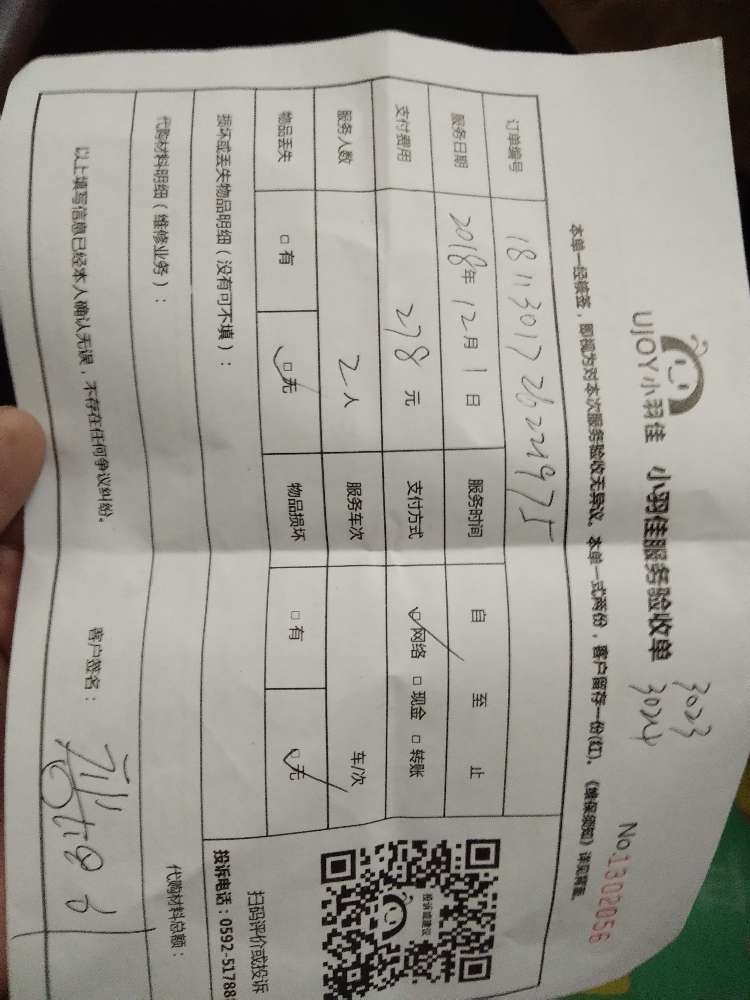 UJOY小羽佳 小羽佳服务验收单
3023
3024
No.1302056
本单一经签签，即视为对本次服务验收无异议。本单一式两份，客户留存一份(红)。《维保须知》详见背面。
订单编号 18113017262221975
服务日期 2018年12月1日 服务时间 自 至 止
支付费用 278元 支付方式 □网络 □现金 □转账
服务人数 2人 服务车次 车/次
物品丢失 □有 □无 物品损坏 □有 □无
投诉或建议
扫码评价或投诉
投诉电话：0592-51788
损坏或丢失物品明细（没有可不填）：
代购材料明细（维修业务）： 代购材料总额：
以上填写信息已经本人确认无误，不存在任何争议纠纷。 客户签名：